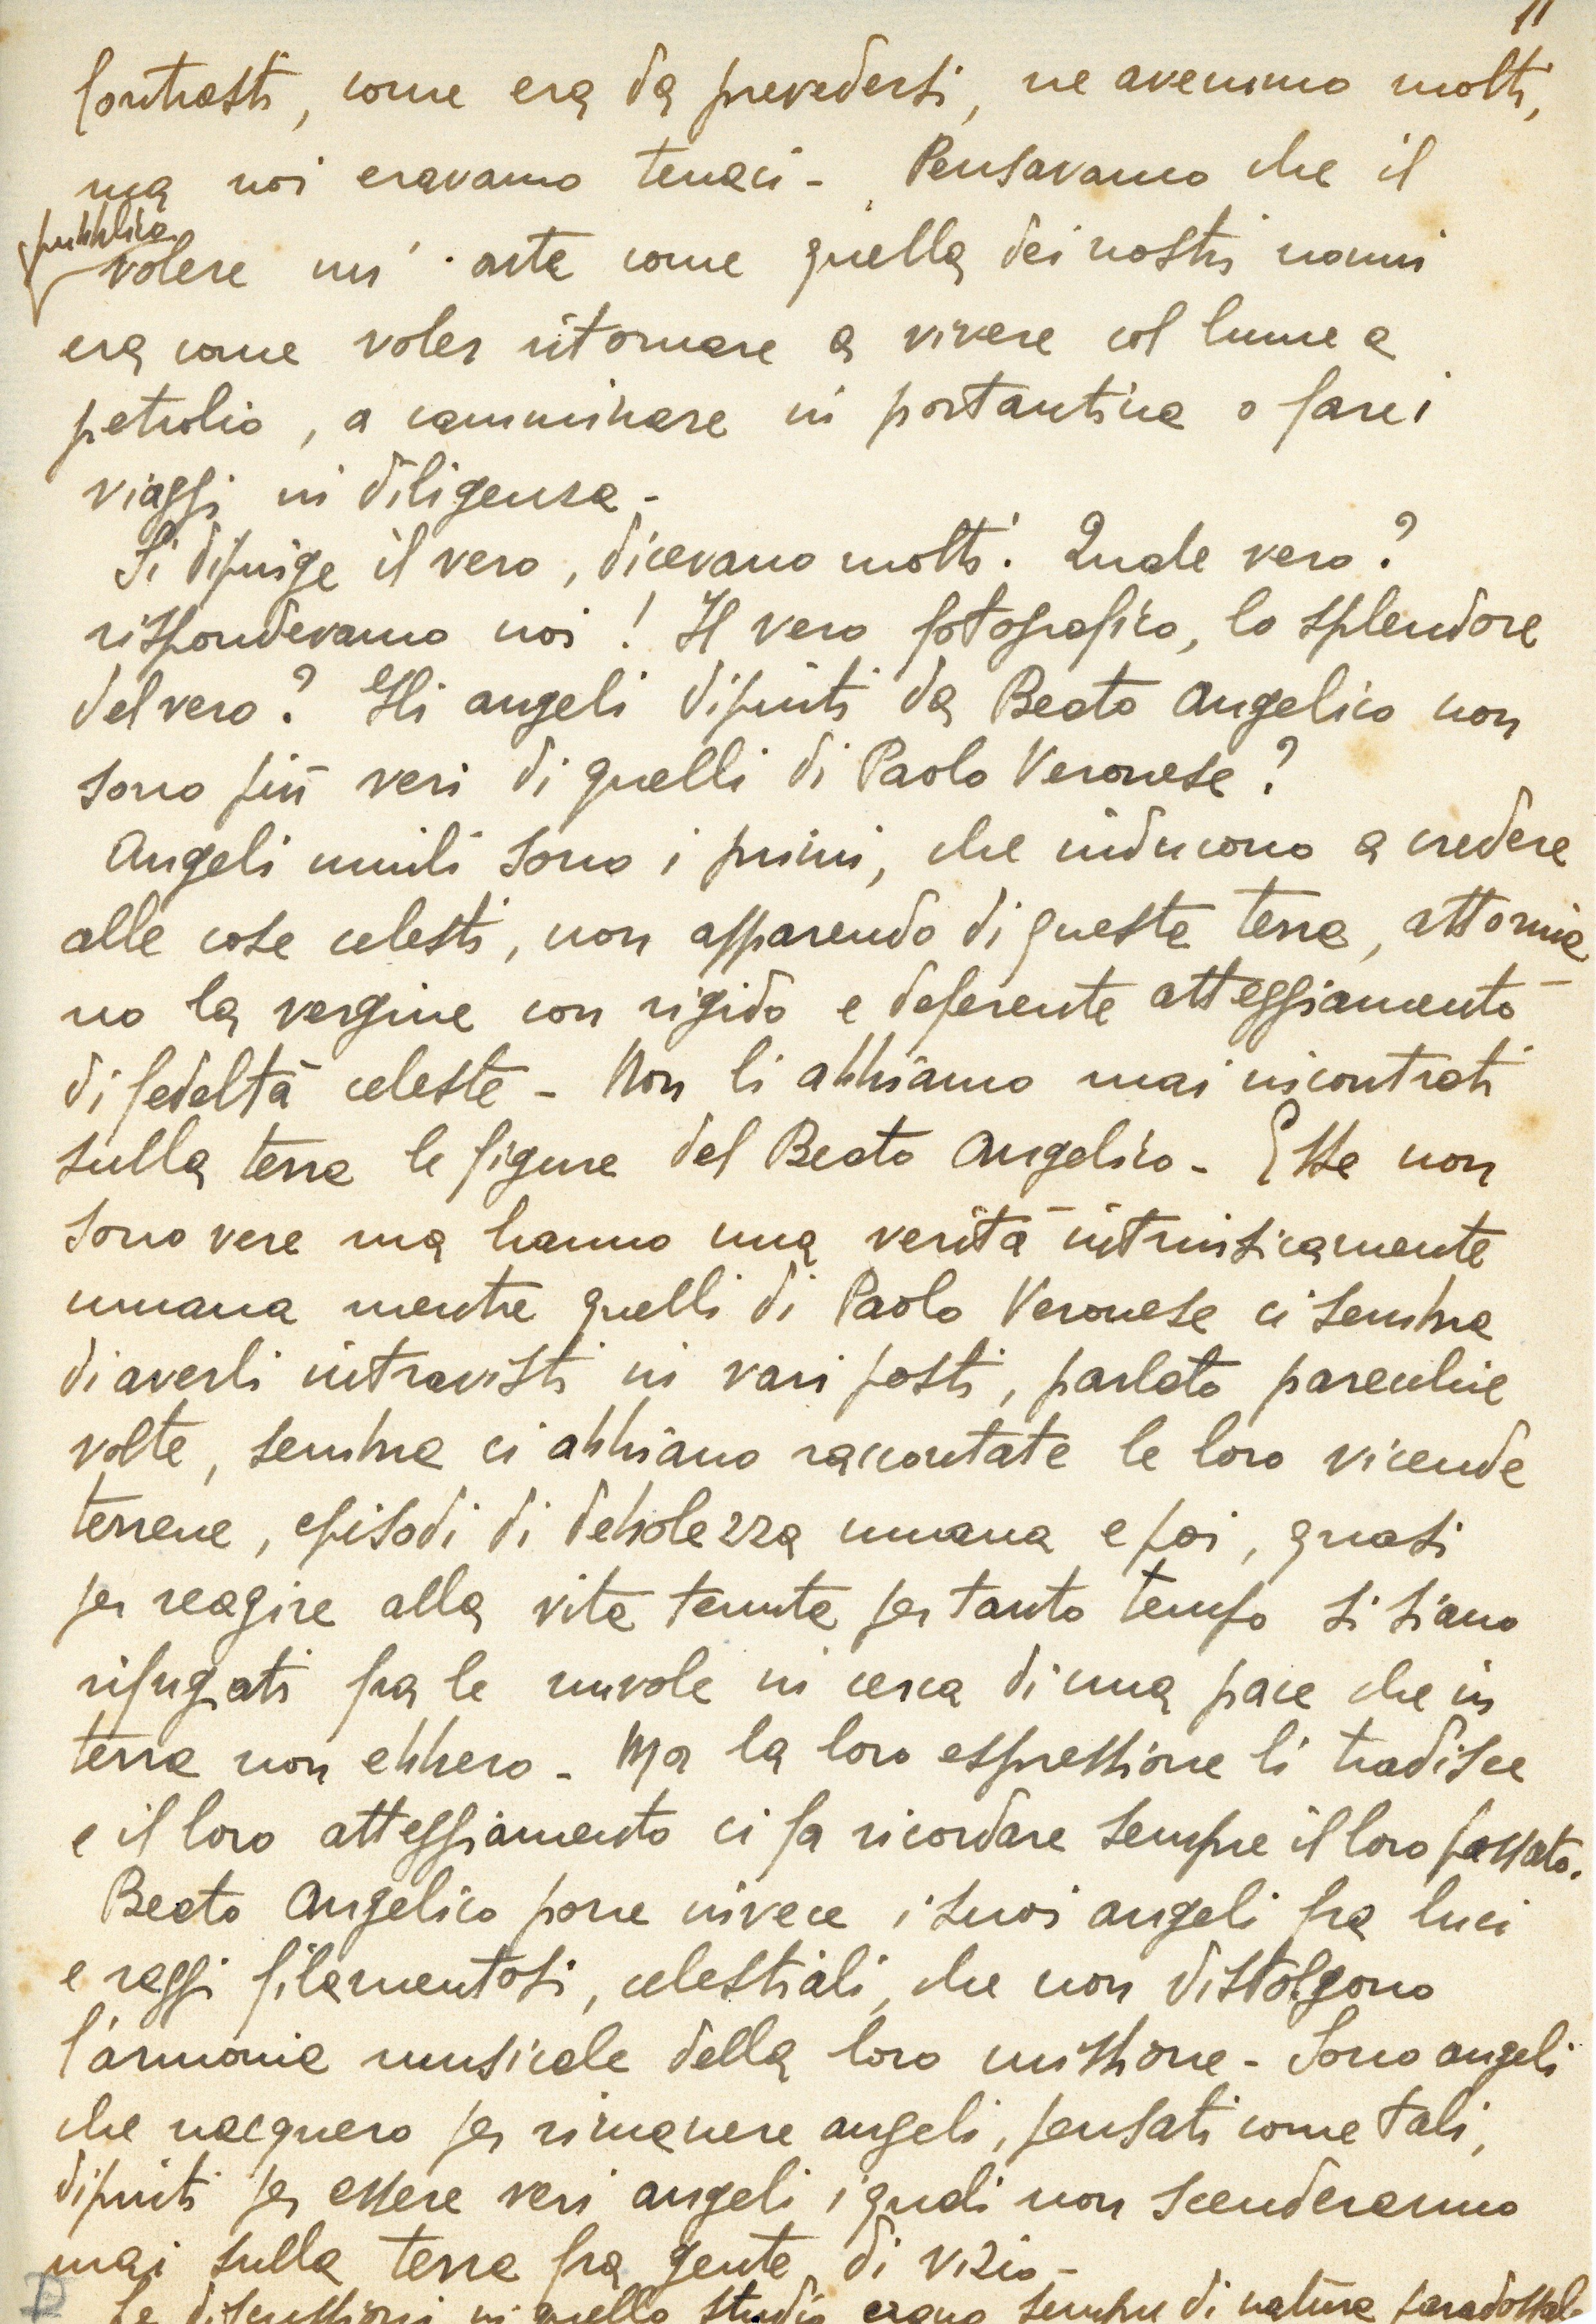 11
Contrasti, come era da prevedersi, ne avemmo molti,
ma noi eravamo tenaci - Pensavamo che il
pubblico
volere un' arte come quella dei nostri nonni
era come voler ritornare a vivere col lume a
petrolio, a camminare in portantina o fare i
viaggi in diligenza -
Si dipinge il vero, dicevano molti. Quale vero?
rispondevamo noi! Il vero fotografico, lo splendore
del vero? Gli angeli dipinti da Beato Angelico non
sono più veri di quelli di Paolo Veronese?
Angeli umili sono i primi, che inducono a credere
alle cose celesti, non apparendo di questa terra, attornia
no la vergine con rigido e deferente atteggiamento
di fedeltà celeste - Non li abbiamo mai incontrati
sulla terra le figure del Beato Angelico - Esse non
sono vere ma hanno una verità intrinsicamente
umana mentre quelli di Paolo Veronese ci sembra
di averli intravisti in vari posti, parlato parecchie
volte, sembra ci abbiano raccontate le loro vicende
terrene, episodi di debolezza umana e poi, quasi
per reagire alla vita tenuta per tanto tempo si siano
rifugati fra le nuvole in cerca di una pace che in
terra non ebbero - Ma la loro espressione li tradisce
e il loro atteggiamento ci fa ricordare sempre il loro passato.
Beato Angelico pone invece i suoi angeli fra luci
e raggi filamentosi, celestiali, che non distolgono
l'armonia musicale della loro missione - Sono angeli
che nacquero per rimanere angeli, pensati come tali,
dipinti per essere veri angeli i quali non scenderanno
mai sulla terra fra gente di vizio -
Le discussioni in quello studio erano sempre di natura paradossal-